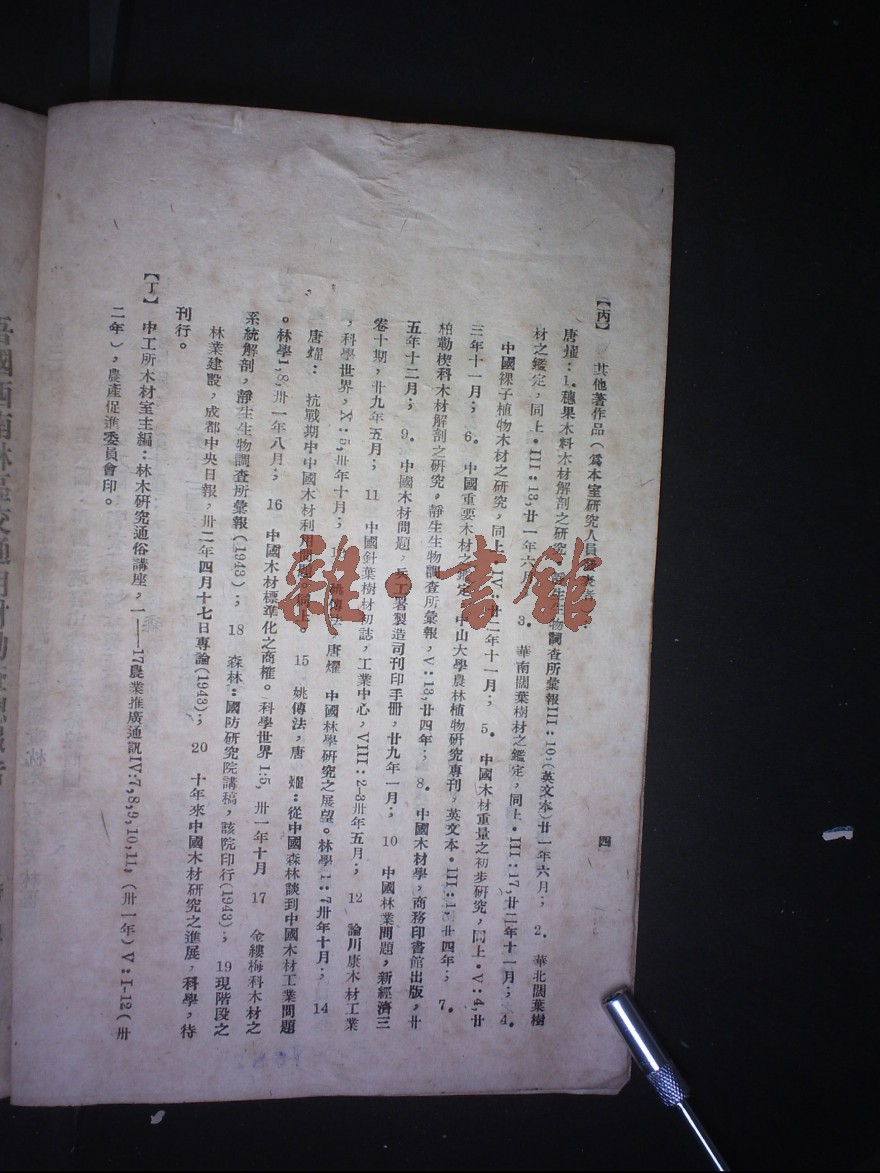 四
【丙】 其他著作品（爲本室研究人員發表者）
唐燿：1.穗果木科木材解剖之研究，靜生生物調查所彙報III：10；（英文本）廿一年六月； 2. 華北闊葉樹
材之鑑定，同上．III：13，廿一年六月； 3. 華南闊葉樹材之鑑定，同上．III：17，廿二年十一月； 4.
中國裸子植物木材之研究，同上．IV：廿二年十一月； 5. 中國木材重量之初步研究，同上．V：4，廿
三年十一月； 6. 中國重要木材之鑑定，中山大學農林植物研究專刊，英文本．III：1，廿四年； 7.
柏勒楔科木材解剖之研究，靜生生物調查所彙報，V：13，廿四年； 8. 中國木材學，商務印書館出版，廿
五年十二月； 9. 中國木材問題，兵工署製造司刊印手冊，廿九年一月； 10 中國林業問題，新經濟三
卷十期，廿九年五月； 11 中國針葉樹材初誌，工業中心，VIII：2-3卅年五月； 12 論川康木材工業
，科學世界，X：5，卅年十月； 姚傳法，唐燿 中國林學研究之展望。林學1：7卅年十月； 14
唐燿： 抗戰期中中國木材利用問題。同上。 15 姚傳法，唐 燿：從中國森林談到中國木材工業問題
。林學1，8，卅一年八月； 16 中國木材標準化之商榷。科學世界1:5，卅一年十月 17 金縷梅科木材之
系統解剖，靜生生物調查所彙報（1943）； 18 森林：國防研究院講稿，該院印行（1943）； 19現階段之
林業建設，成都中央日報，卅二年四月十七日專論（1943）； 20 十年來中國木材研究之進展，科學，待
刊行。
【丁】 中工所木材室主編：林木研究通俗講座，一——17農業推廣通訊IV:7,8,9,10,11,（卅一年）V：I-12（卅
二年），農產促進委員會印。
雜·書館